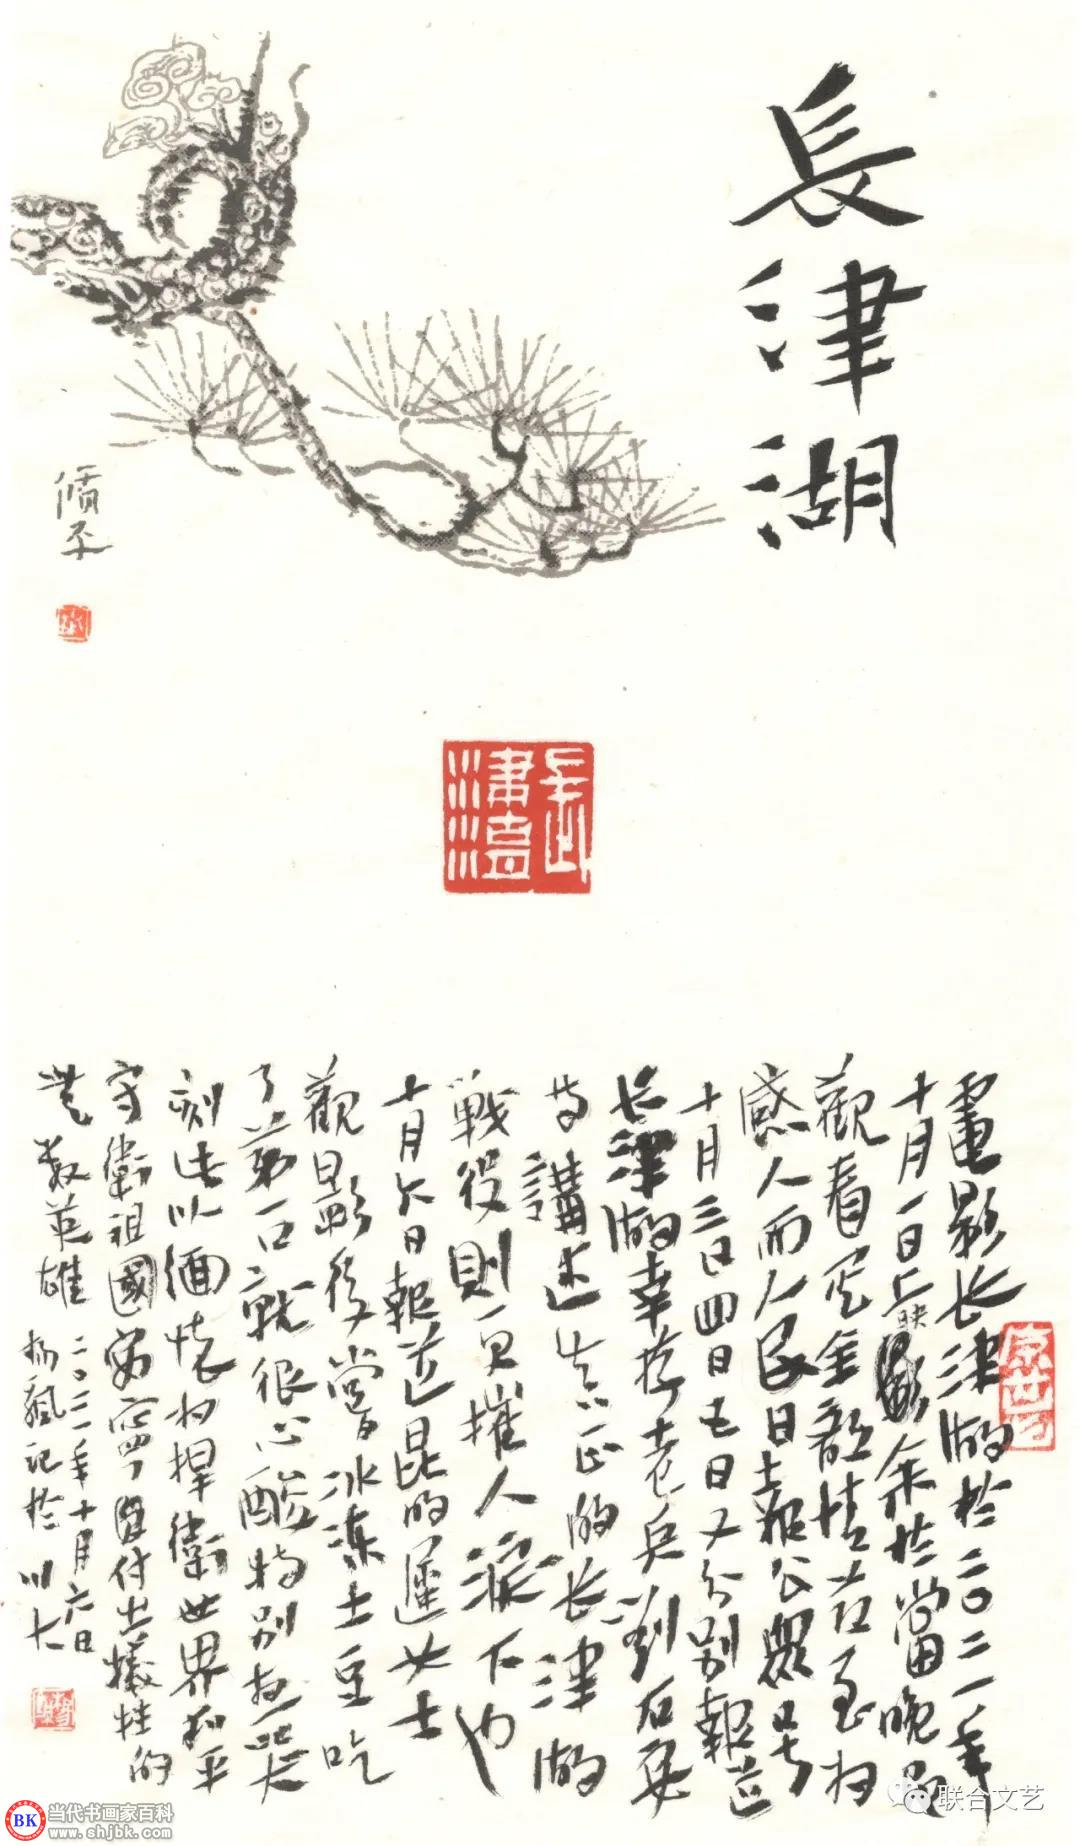 長津湖
電影长津湖於二〇二一年
十月一日上映 余於當晚即
觀看 全劇情 為
感人而人民日報公眾号
十月三日四日五日又分别報道
长津湖幸存老兵劉石安
等講述真正的长津湖
戰役則一更摧人淚下也
十月六日報道昆明的連女士
觀影後嘗冰凍土豆吃
了第一口就很心酸特别想哭
刻此以緬懷為捍衛世界和平
守衛祖國安寧付出犧牲的
英雄 二〇二一年十月六日
楊飆記於川大
联合文艺
BK 当代书画家百科
www.shjbk.com